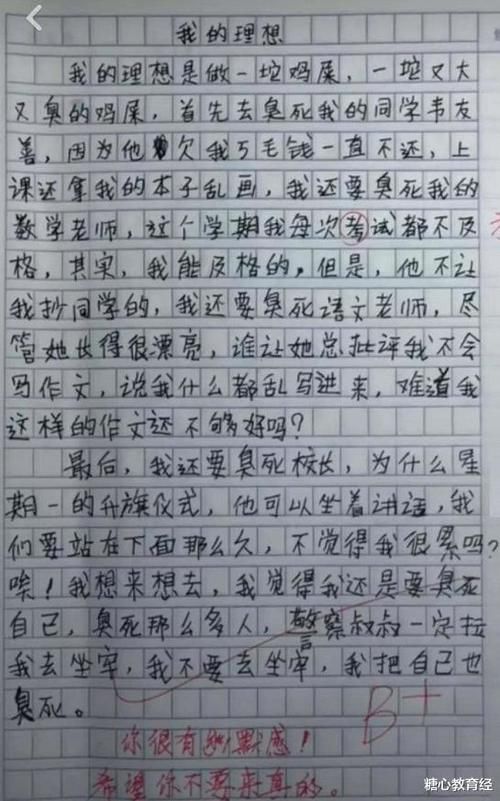 我的理想
我的理想是做一坨鸡屎，一坨又大
又臭的鸡屎，首先去臭死我的同学韦友
善，因为他欠我5毛钱一直不还，上
课还拿我的本子乱画，我还要臭死我的
数学老师，这个学期我每次考试都不及
格，其实，我能及格的，但是，他不让
我抄同学的，我还要臭死语文老师，尽
管她长得很漂亮，谁让她总批评我不会
写作文，说我什么都乱写进来，难道我
这样的作文还不够好吗？
最后，我还要臭死校长，为什么星
期一的升旗仪式，他可以坐着讲话，我
们要站在下面那么久，不觉得我很累吗？
唉！我想来想去，我觉得我还是要臭死
自己，臭死那么多人，警察叔叔一定拉
我去坐牢，我不要去坐牢，我把自己也
臭死。
B+
你很有幽默感！
希望你不要来真的。
糖心教育经